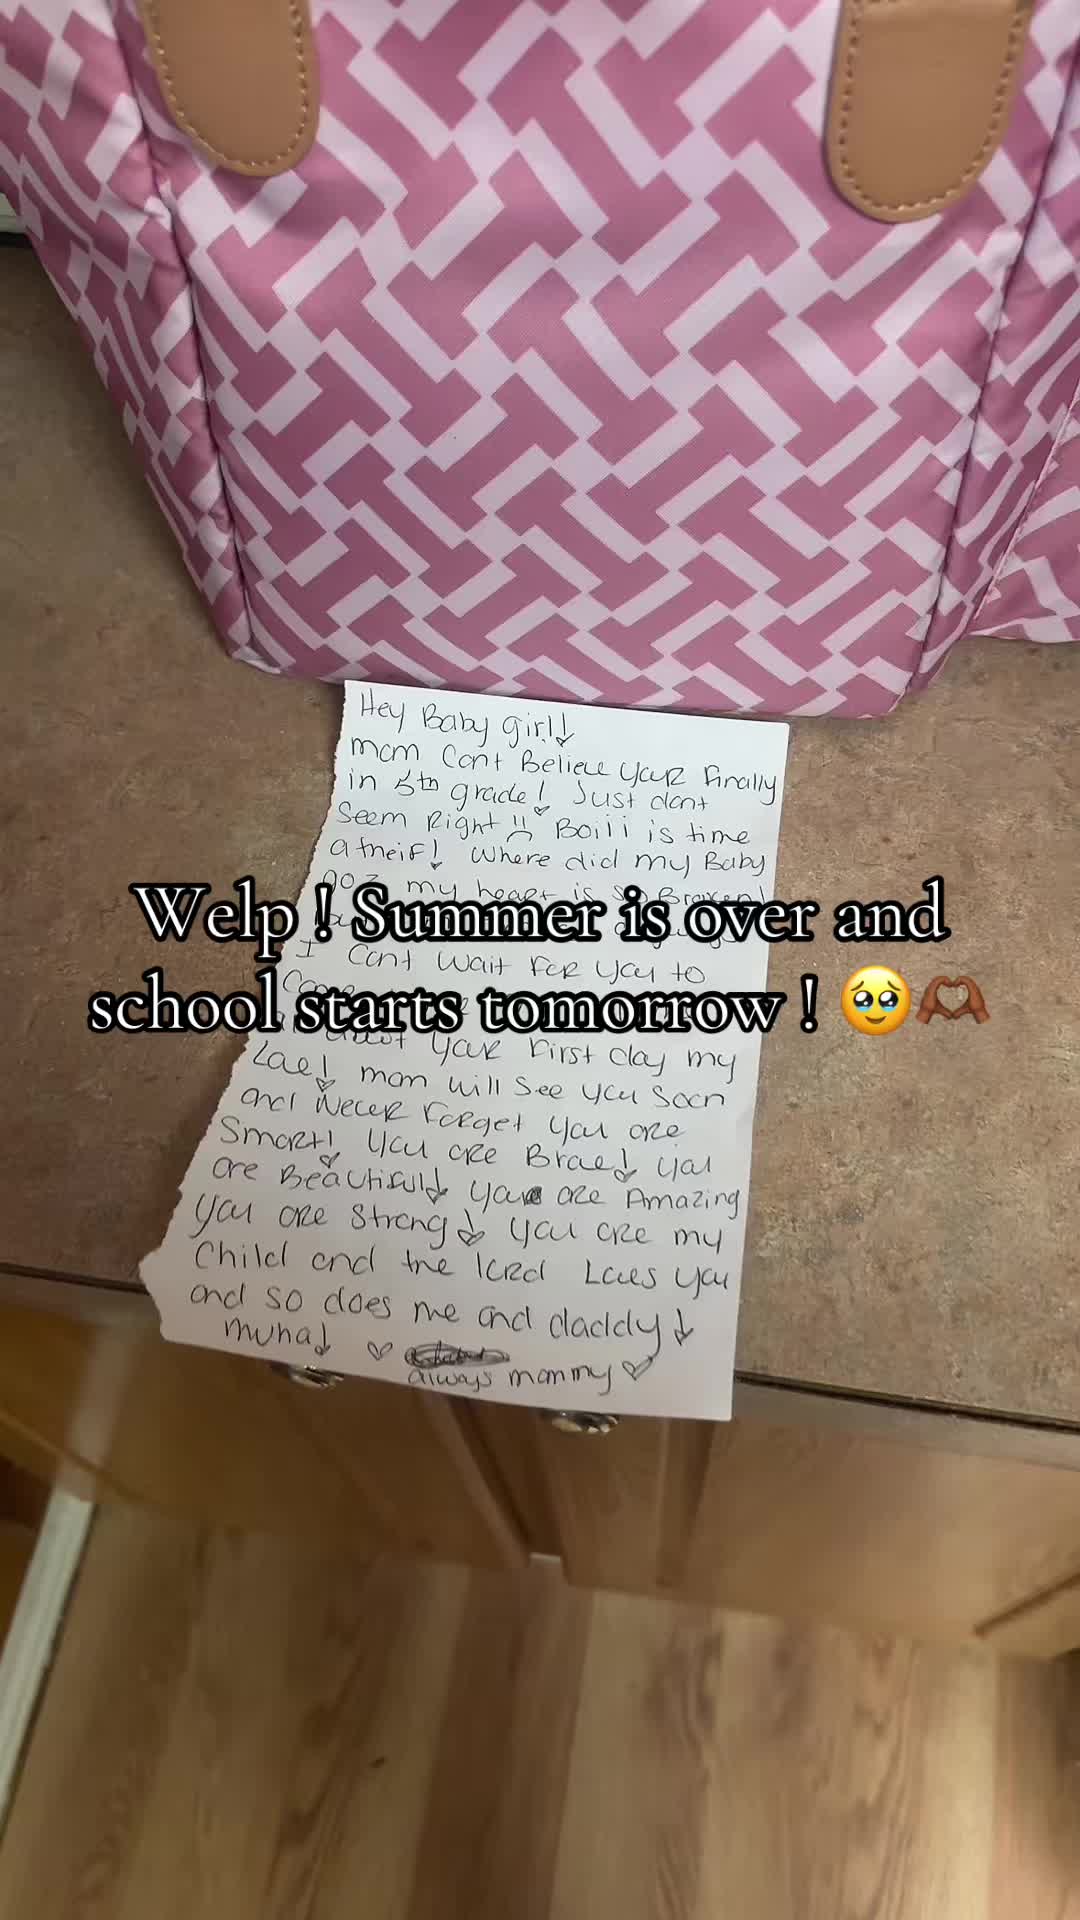 Hey Baby girl!
mom Cant Believe your Finally
in 5th grade! Just dont
Seem Right !! Boiii is time
a theif! Where did my Baby
go? my heart is so Broken!
Welp ! Summer is over and
I Cant Wait For you to
school starts tomorrow ! 🥹🫶🏾
about your First day my
Love! mom will See you Soon
and Never Forget you are
Smart! you are Brave! you
are Beautiful! you are Amazing
you are Strong! you are my
Child and the lord Loves you
and so does me and daddy!
muha! ♡
always mommy ♡